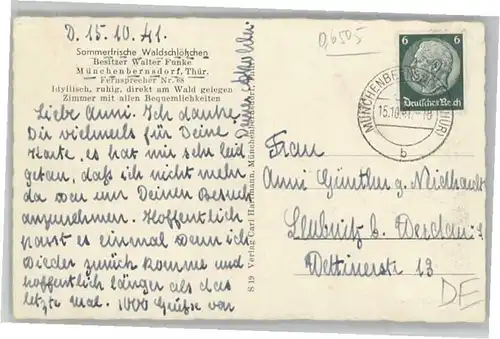 D. 15.10.41.
Sommerfrische Waldschlößchen
Besitzer Walter Funke
Münchenbernsdorf, Thür.
Fernsprecher Nr. 68
Idyllisch, ruhig, direkt am Wald gelegen
Zimmer mit allen Bequemlichkeiten
Liebe Anni. Ich danke
Dir vielmals für Deine
Karte, es hat mir sehr leid
getan, daß ich nicht mehr
da war um Deinen Besuch
anzunehmen. Hoffentlich
passt es einmal wenn ich
wieder zurück komme und
hoffentlich länger als das
letzte mal. 1000 Grüße von
Deiner
S 19 Verlag Carl Hartmann, Münchenbernsdorf, Thür.
0,6505
6 6
Deutsches Reich
MÜNCHENBERNSDORF (THÜR)
15.10.41
b
Frau
Anni Günther g. Neidhardt
Leubnitz b. Werdau i.
Wettinerstr 13
DE